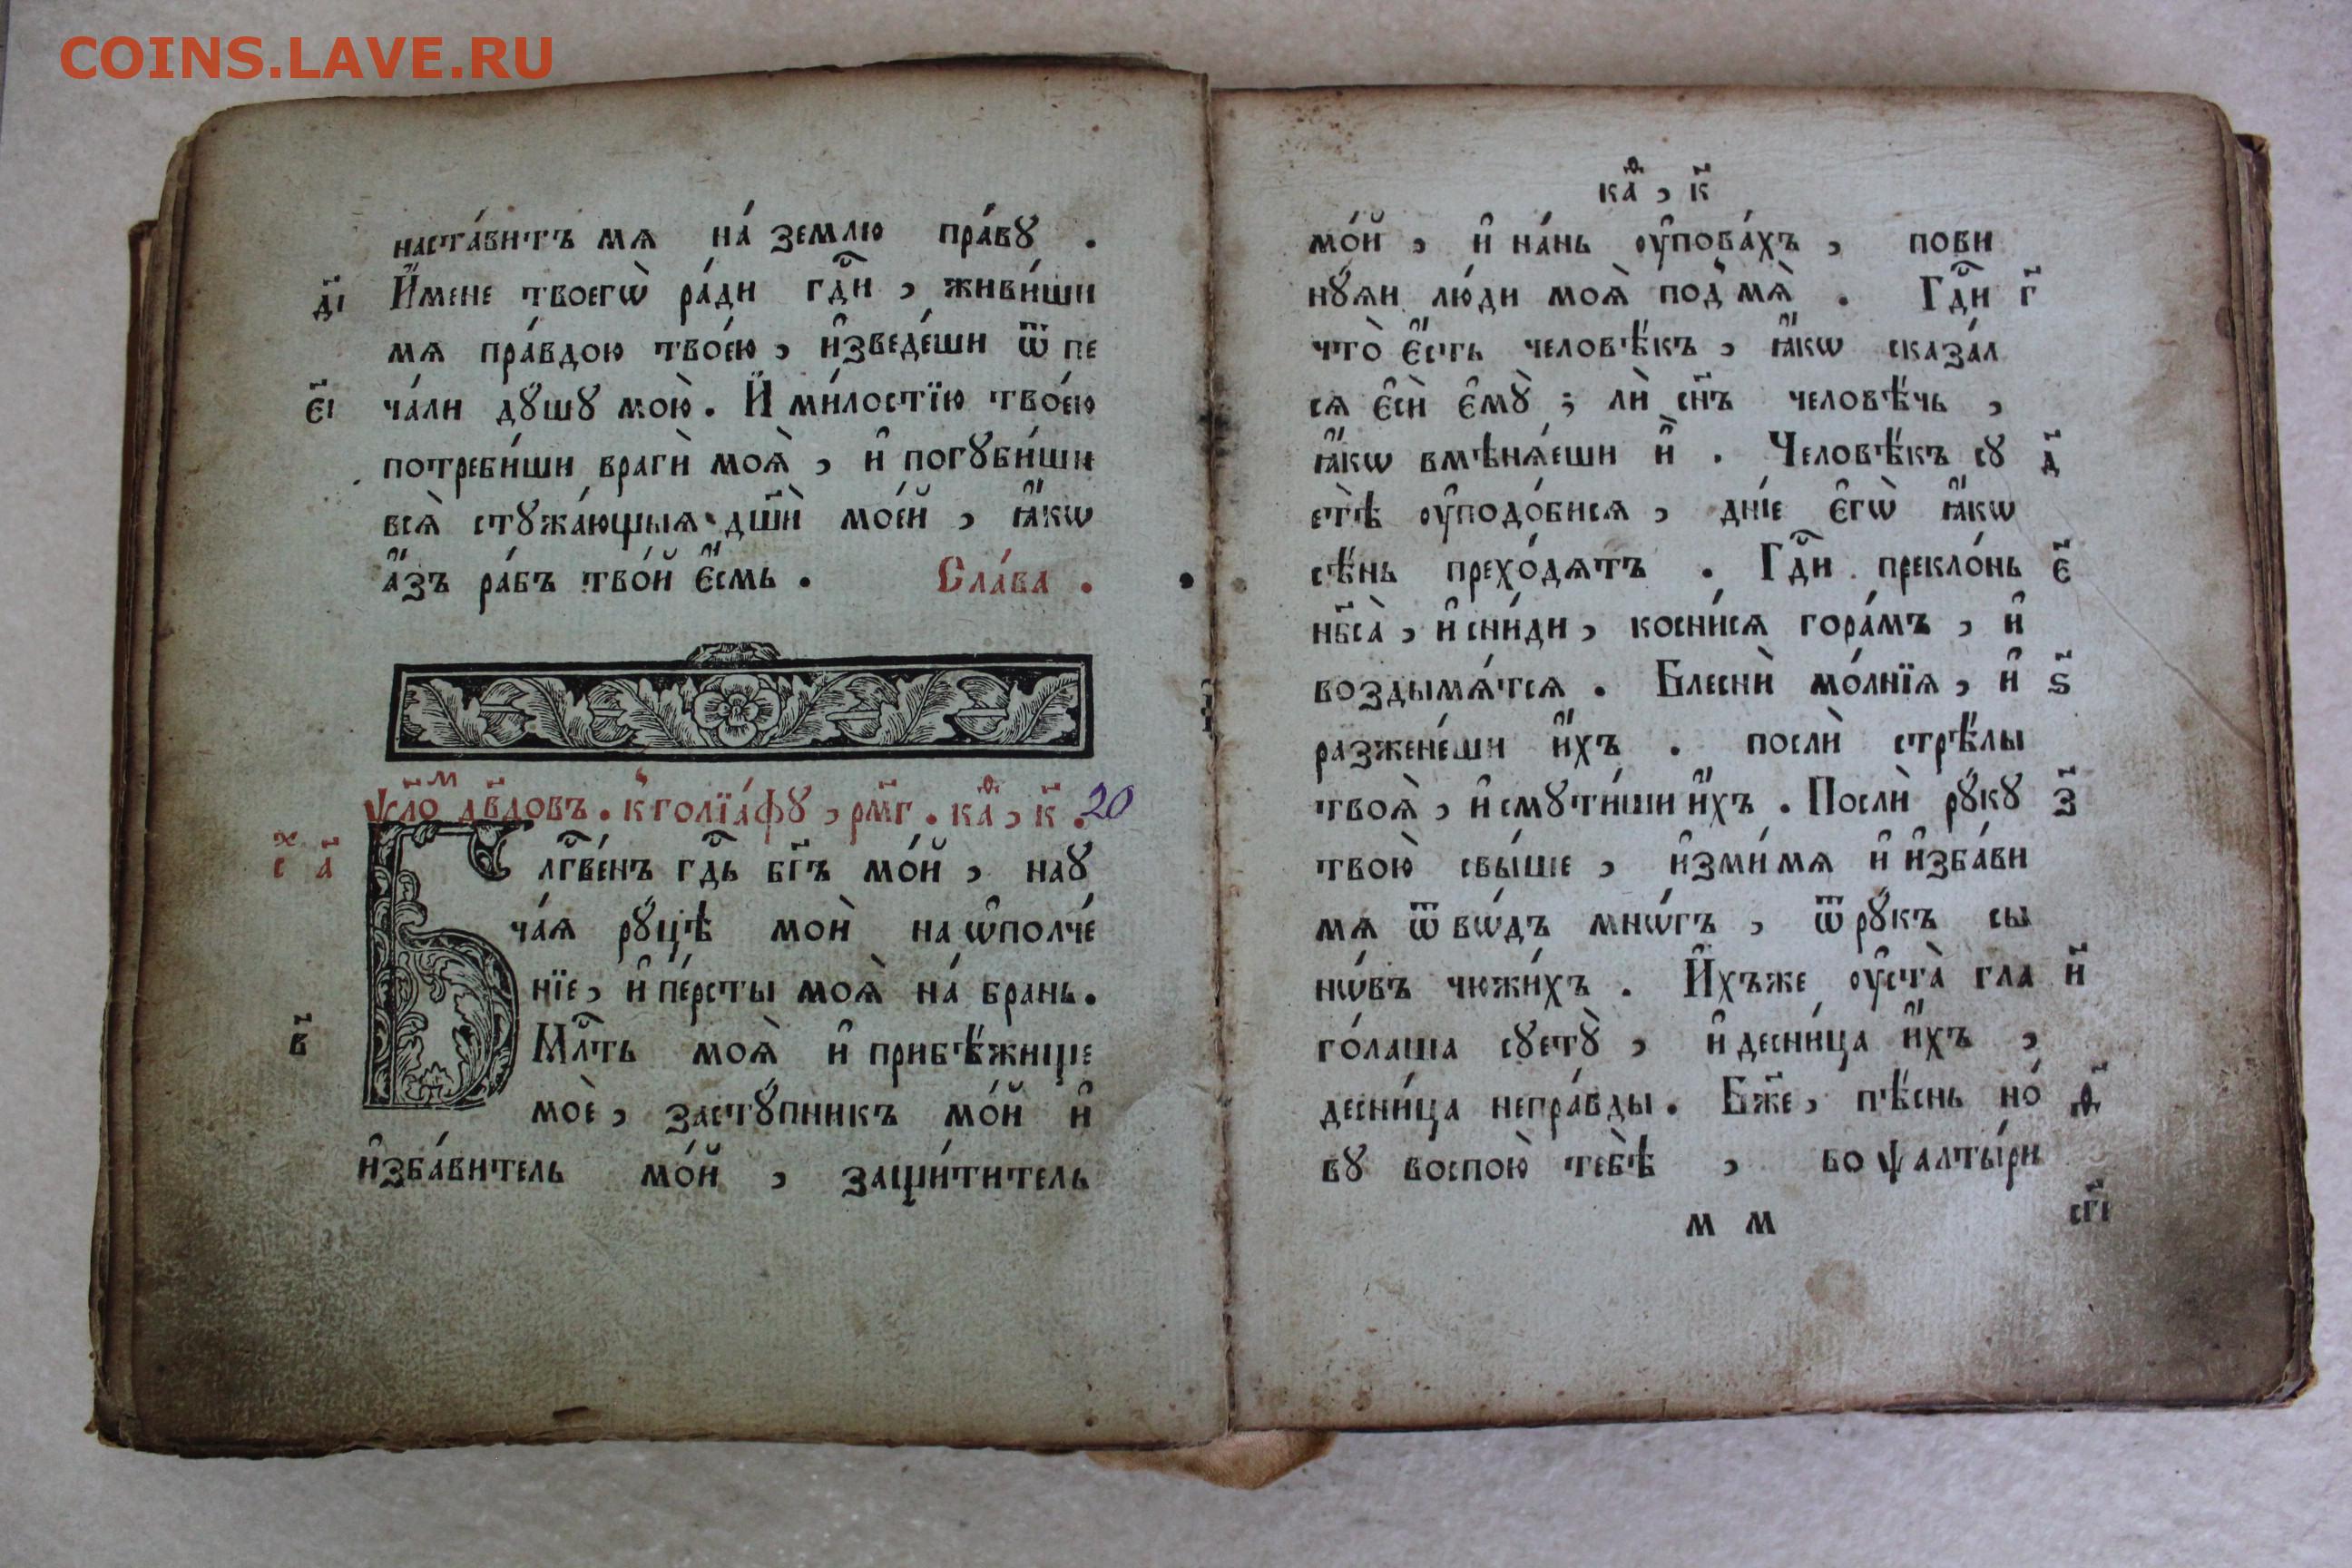 COINS.LAVE.RU
наста́витъ мѧ на́ землю пра́вꙋ .
д҃і И҆́мене твоегѡ̀ ра́ди гдⷭ҇и , живи́ши
мѧ пра́вдою твое́ю , и҆зведе́ши ѿ пе
є҃і ча́ли дꙋ́шꙋ мою̀ . И҆ ми́лостїю твое́ю
потреби́ши врагѝ моѧ̀ , и҆ погꙋби́ши
всѧ̀ стꙋжа́ющыѧ дш҃ѝ мое́й , ꙗ҆́кѡ
а҆́зъ ра́бъ тво́й є҆́смь . Сла́ва .
ѱл҃о́ⷨ дв҃довъ . к̾ голїа́ѳꙋ , рм҃г . каѳ , к҃ . 20
с х а҃ Блгⷭ҇ве́нъ гдⷭ҇ь бг҃ъ мо́й , наꙋ
ча́ѧ рꙋ́цѣ моѝ на ѡ҆полче́
нїе , и҆ пе́рсты моѧ̀ на́ брань .
в҃ Млⷭ҇ть моѧ̀ и҆ прибѣ́жище
моѐ , застꙋ́пникъ мо́й и҆
и҆зба́витель мо́й , защи́титель
каѳ , к҃
мо́й , и҆ на́нь ᲂу҆пова́хъ , пови
нꙋ́ѧи лю́ди моѧ̀ под̾ мѧ̀ . Гдⷭ҇и г҃
что̀ є҆́сть человѣ́къ , ꙗ҆́кѡ сказа́л
сѧ є҆сѝ є҆мꙋ̀ ; лѝ сн҃ъ человѣ́чь ,
ꙗ҆́кѡ вмѣнѧ́еши и҆̀ . Человѣ́къ сꙋ д҃
етѣ̀ ᲂу҆подо́бисѧ , дні́е є҆гѡ̀ ꙗ҆́кѡ
сѣ́нь прехо́дѧтъ . Гдⷭ҇и преклѡ́нь є҃
нб҃са̀ , и҆ сни́ди , косни́сѧ гора́мъ , и҆
воздымѧ́тсѧ . Блеснѝ мо́лнїѧ , и҆ ѕ҃
разжене́ши и҆́хъ . послѝ стрѣ́лы
твоѧ̀ , и҆ смꙋти́ши и҆́хъ . Послѝ рꙋ́кꙋ з҃
твою̀ свы́ше , и҆зми́ мѧ и҆ и҆зба́ви
мѧ ѿ во́дъ мнѡ́гъ , ѿ рꙋ́къ сы
нѡ́въ чюжи́хъ . И҆́хъже ᲂу҆ста̀ гла и҃
го́лаша сꙋетꙋ̀ , и҆ десни́ца и҆́хъ ,
десни́ца непра́вды . Бж҃е , пѣ́снь но́ ѳ҃
вꙋ воспою̀ тебѣ̀ , во ѱалты́ри
м м сг҃і